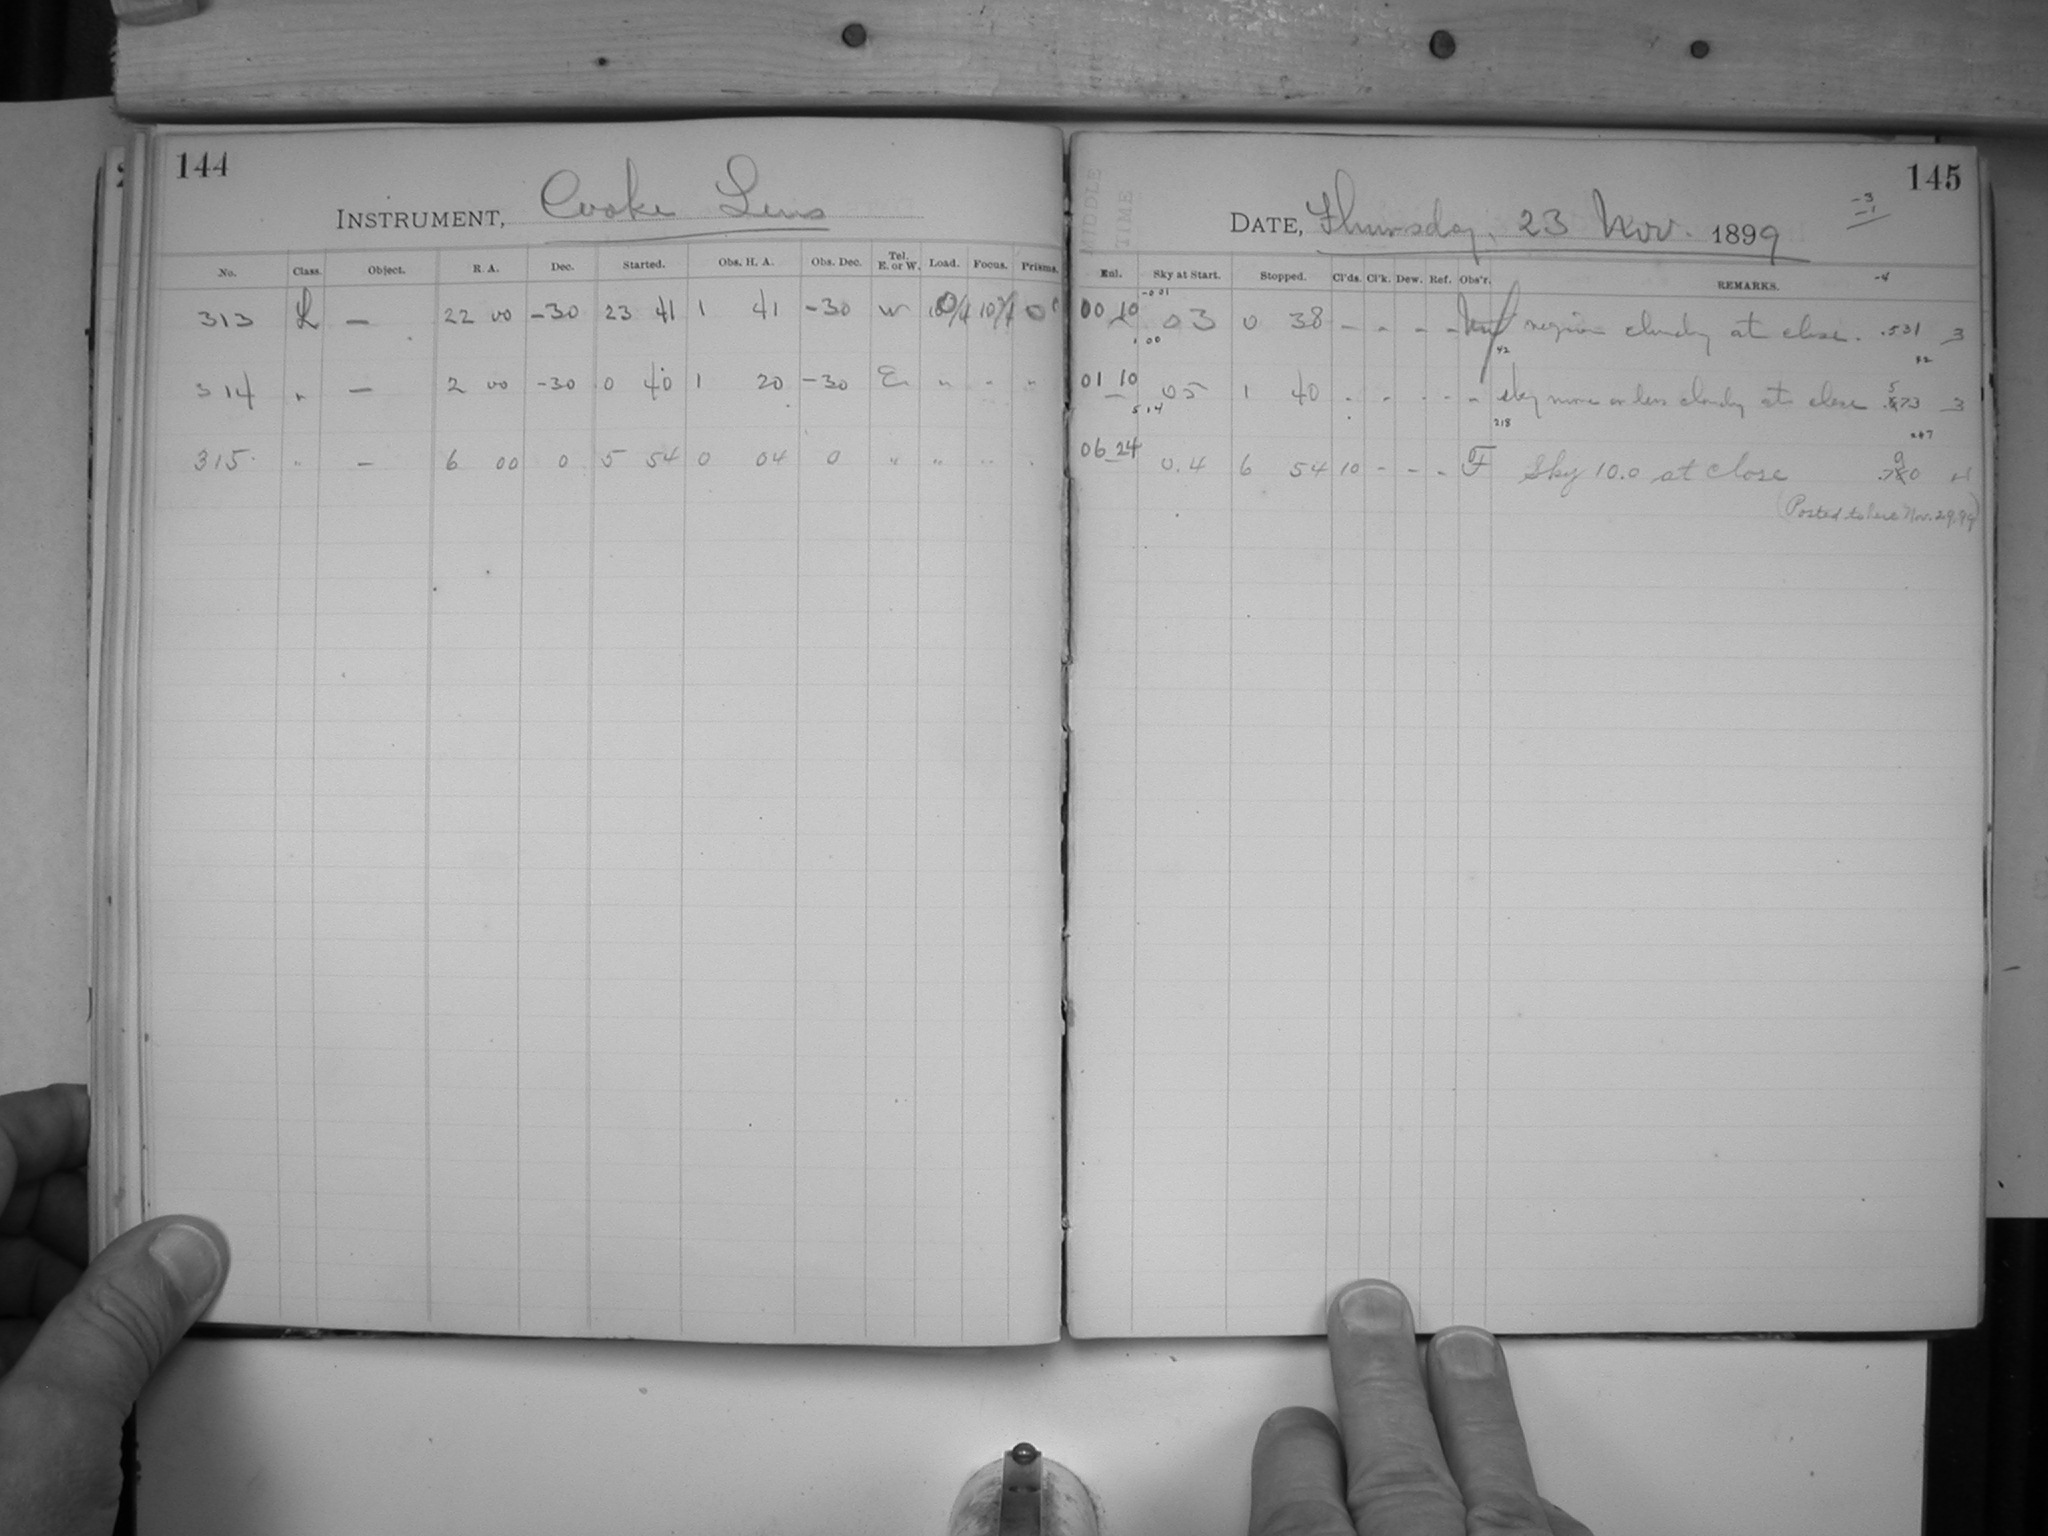 144
INSTRUMENT, Cooke Lens
No. Class. Object. R. A. Dec. Started. Obs. H. A. Obs. Dec. Tel. E. or W. Load. Focus. Prisms.
313 L — 22 00 -30 23 41 1 41 -30 W 10 0
314 " — 2 00 -30 0 40 1 20 -30 E " " "
315 " — 6 00 0 5 54 0 04 0 " " " "
145
MIDDLE TIME
DATE, Thursday, 23 Nov. 1899
-3
-1
-4
Exl. Sky at Start. Stopped. Cl'ds. Cl'k. Dew. Ref. Obs'r. REMARKS.
-0 01
00 10 03 0 38 - - - - region cloudy at close. .531 3
1 00 42 +2
01 10 05 1 40 - - - - " sky more or less cloudy at close .573 3
5 14 218 +7
06 24 0.4 6 54 10 - - - F Sky 10.0 at close
(Posted to here Nov. 29, 99)